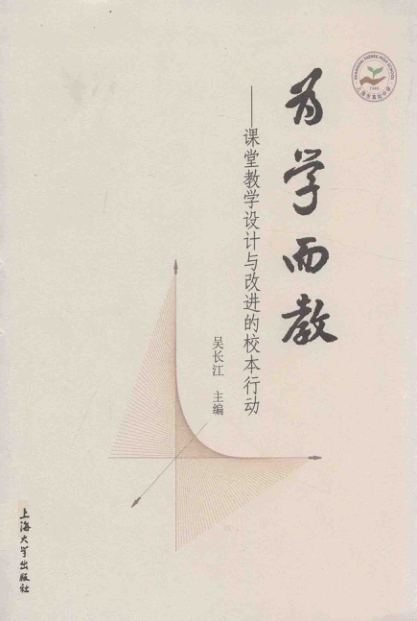 为学而教
——课堂教学设计与改进的校本行动
吴长江 主编
上海大学出版社